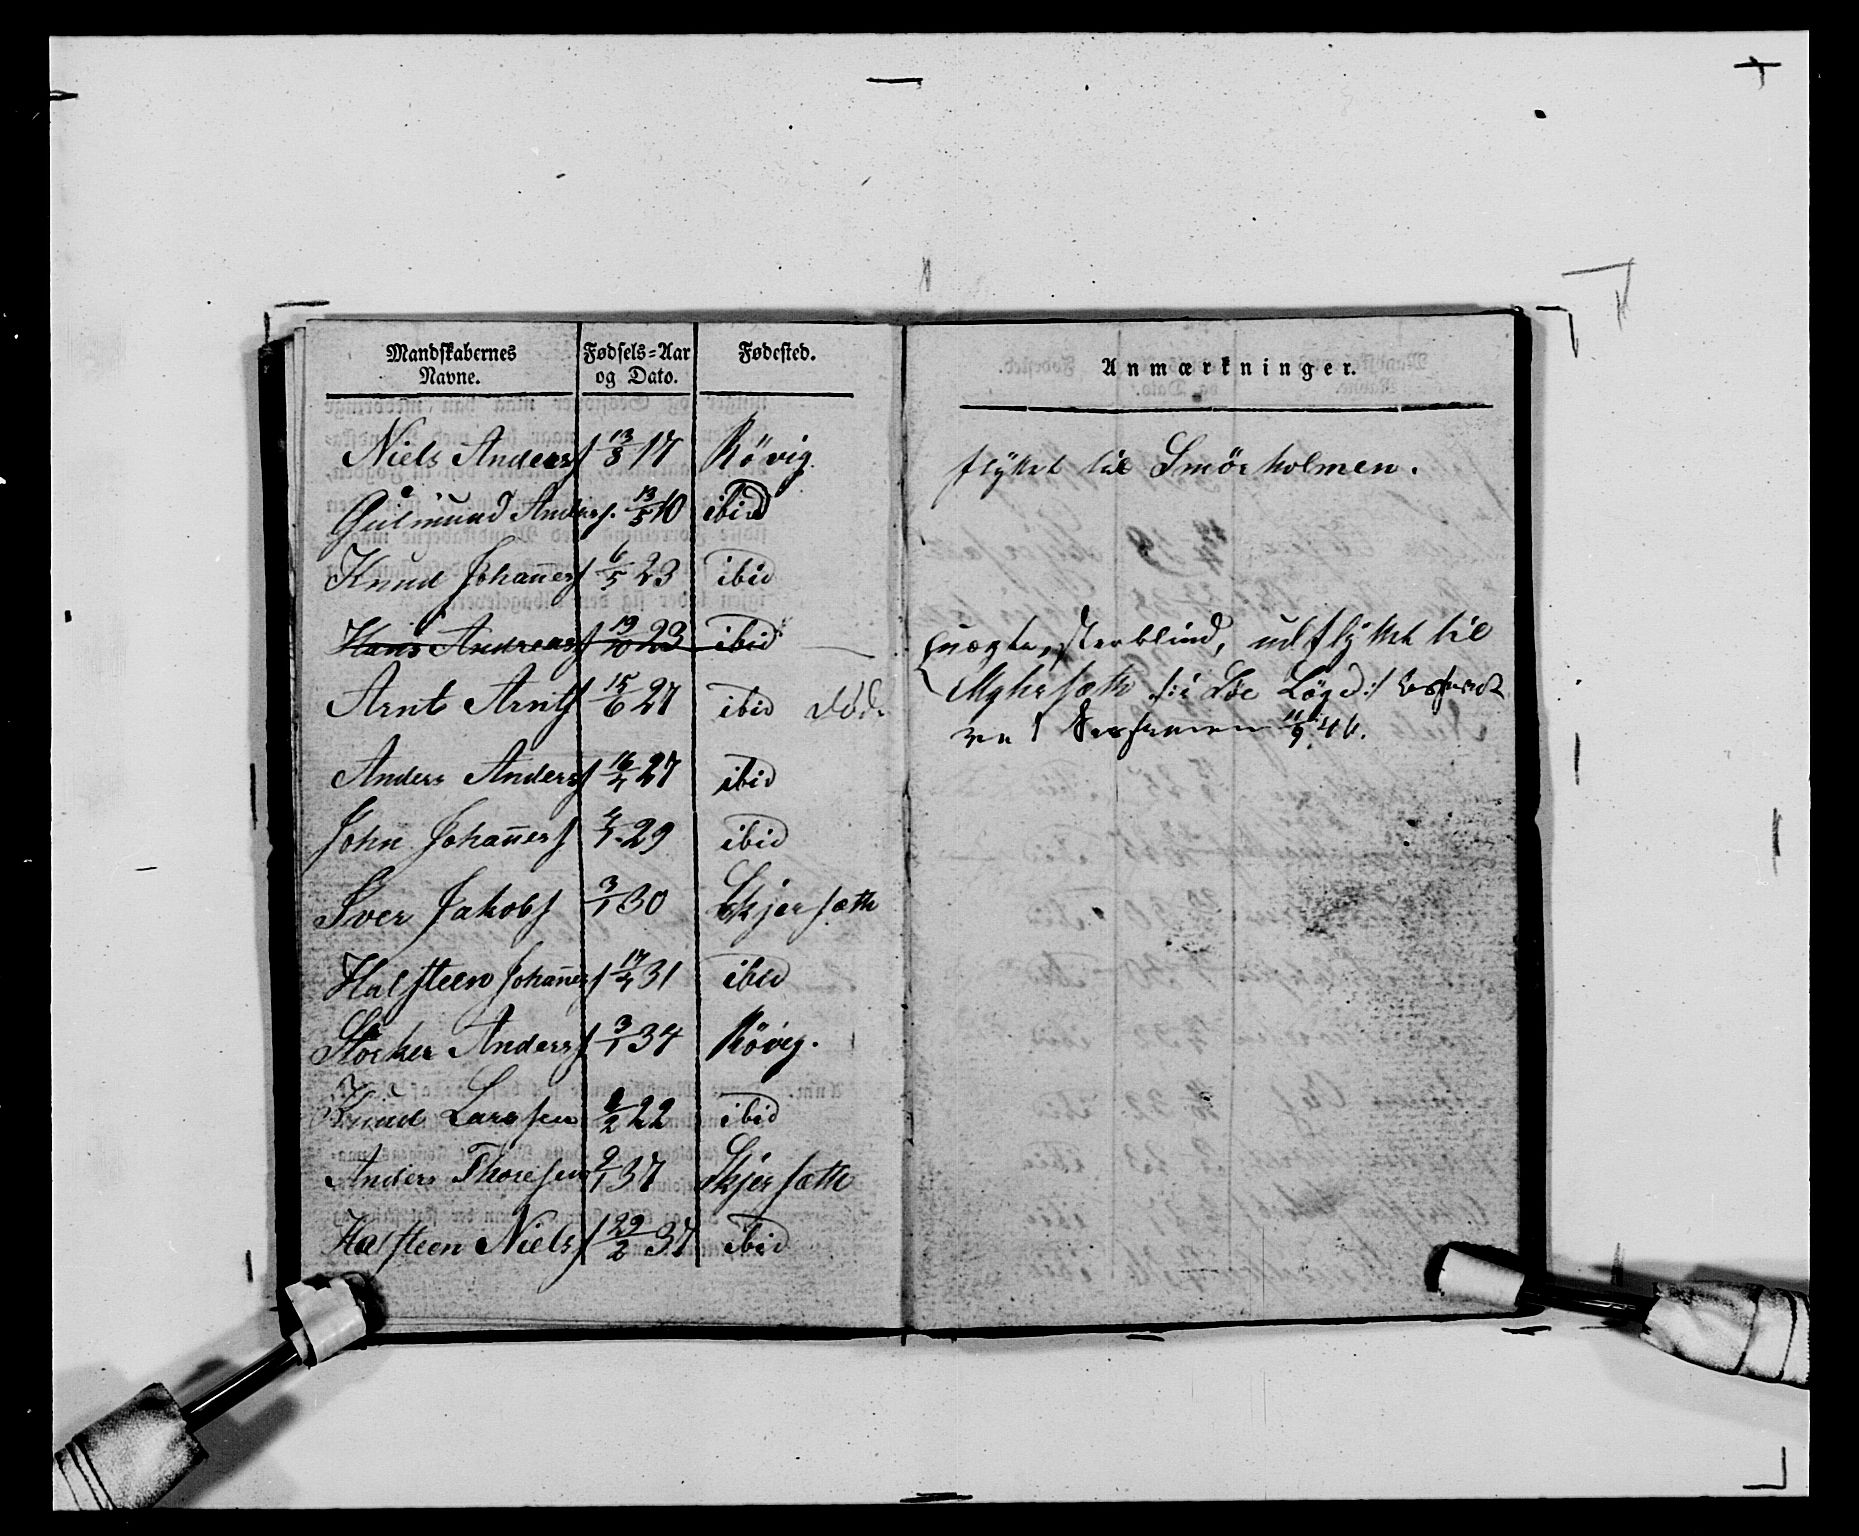 Mandskabernes Navne. Fødsels-Aar og Dato. Fødested.
Niels Anders 13/8 17 Rövig.
Gulmund Anders. 13/5 10 ibid
Knud Johañes 6/5 23 ibid
Hans Andreas 19/10 23 ibid
Arnt Arnts 15/6 27 ibid död.
Anders Anders 16/7 27 ibid
John Johañes 4/7 29 ibid
Iver Jakobs 3/1 30 Skjersæth
Halsteen Johañes 17/4 31 ibid
Storker Anders 3/1 34 Rövig.
Knud Larssen 1/2 22 ibid
Anders Thoresen 9/1 37 Skjersæth
Halsteen Niels 22/2 37 ibid
Anmærkninger.
flyttet til Smörholmen.
udflyttet til
Löe Lægd
11/9 46.